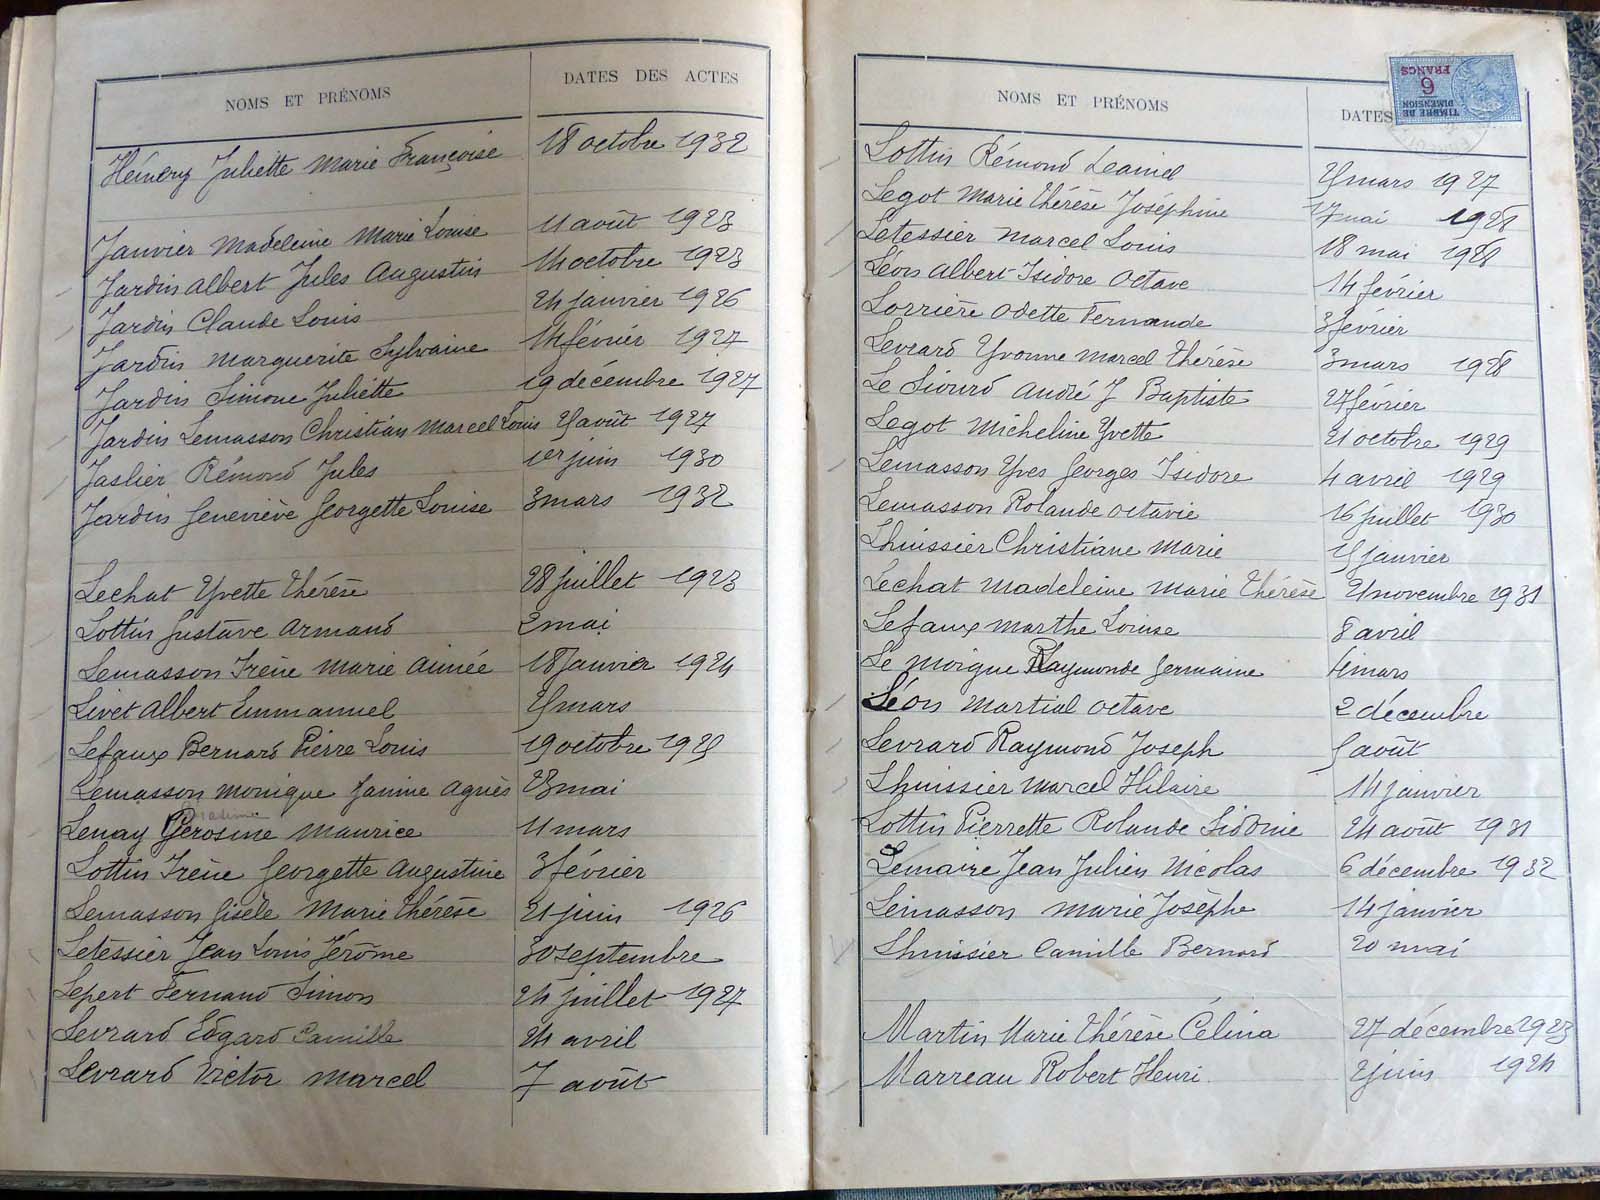 NOMS ET PRÉNOMS DATES DES ACTES
Hémery Juliette Marie Françoise 18 octobre 1932
Janvier Madeleine Marie Louise 11 août 1923
Jardin Albert Jules Augustin 14 octobre 1923
Jardin Claude Louis 24 janvier 1926
Jardin Marguerite Sylvaine 14 février 1927
Jardin Simone Juliette 19 décembre 1927
Jardin Lemasson Christian Marcel Louis août 1927
Jaslier Rémond Jules 1er juin 1930
Jardin Geneviève Georgette Louise 3 mars 1932
Lechat Yvette Thérèse 28 juillet 1923
Lottin Gustave Armand 2 mai
Lemasson Irène Marie Aimée 18 janvier 1924
Livet Albert Emmanuel mars
Lefaux Bernard Pierre Louis 19 octobre 1925
Lemasson Monique Janine Agnès 28 mai
Lenay Maurice 11 mars
Lottin Irène Georgette Augustine 3 février
Lemasson Gisèle Marie Thérèse 21 juin 1926
Letessier Jean Louis Jérôme 30 septembre
Lepert Fernand Simon 24 juillet 1927
Levrard Edgard Camille 24 avril
Levrard Victor Marcel 7 août
NOMS ET PRÉNOMS DATES
TIMBRE DE DIMENSION
6 FRANCS
Lottin Rémond Daniel mars 1927
Legot Marie Thérèse Joséphine 17 mai 1928
Letessier Marcel Louis 18 mai 1928
Léon Albert Isidore Octave 14 février
Lorrière Odette Fernande 3 février
Levrard Yvonne Marcel Thérèse 3 mars 1928
Le Siourd André J Baptiste 27 février
Legot Micheline Yvette 21 octobre 1929
Lemasson Yves Georges Isidore 4 avril 1929
Lemasson Rolande Octavie 16 juillet 1930
Lhuissier Christiane Marie janvier
Lechat Madeleine Marie Thérèse novembre 1931
Lefaux Marthe Louise 8 avril
Le Moigne Raymonde Germaine mars
Léon Martial Octave 2 décembre
Levrard Raymond Joseph août
Lhuissier Marcel Hilaire 14 janvier
Lottin Pierrette Rolande Sidonie 24 août 1931
Lemaire Jean Julien Nicolas 6 décembre 1932
Lemasson Marie Josèphe 14 janvier
Lhuissier Camille Bernard 20 mai
Martin Marie Thérèse Célina 27 décembre 1923
Marreau Robert Henri 2 juin 1924